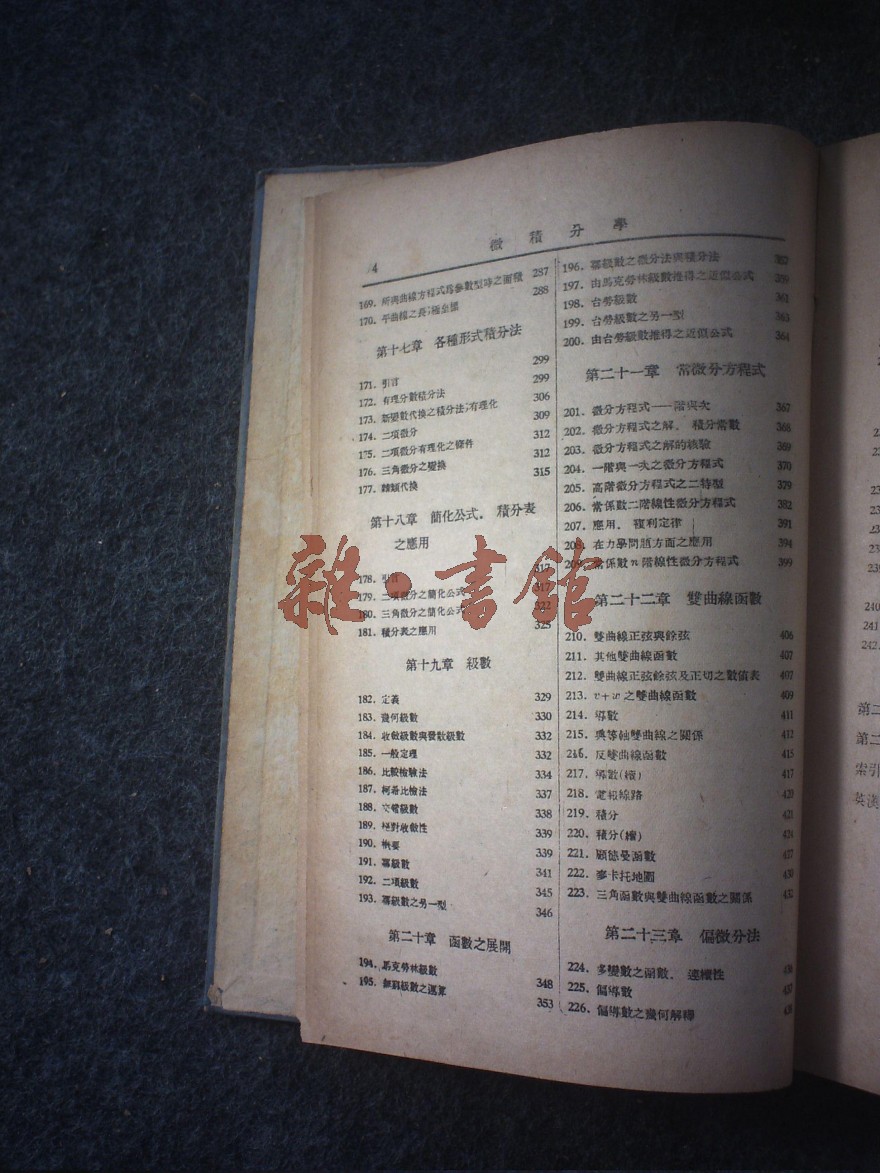 4
微積分學
169. 所與曲線方程式爲參數型時之面積 287
170. 平曲線之長;極坐標 288
第十七章 各種形式積分法
171. 引言 299
172. 有理分數積分法 299
173. 新變數代換之積分法;有理化 306
174. 二項微分 309
175. 二項微分有理化之條件 312
176. 三角微分之變換 312
177. 雜類代換 315
第十八章 簡化公式。 積分表
之應用
178. 引言
179. 二項微分之簡化公式 317
180. 三角微分之簡化公式 322
181. 積分表之應用 325
第十九章 級數
182. 定義 329
183. 幾何級數 330
184. 收斂級數與發散級數 332
185. 一般定理 332
186. 比較檢驗法 334
187. 柯希比檢法 337
188. 交錯級數 338
189. 絕對收斂性 339
190. 概要 339
191. 冪級數 341
192. 二項級數 345
193. 冪級數之另一型 346
第二十章 函數之展開
194. 馬克勞林級數 348
195. 無窮級數之運算 353
196. 冪級數之微分法與積分法 357
197. 由馬克勞林級數推得之近似公式 359
198. 台勞級數 361
199. 台勞級數之另一型 363
200. 由台勞級數推得之近似公式 364
第二十一章 常微分方程式
201. 微分方程式——階與次 367
202. 微分方程式之解。 積分常數 368
203. 微分方程式之解的核驗 369
204. 一階與一次之微分方程式 370
205. 高階微分方程式之二特型 379
206. 常係數二階線性微分方程式 382
207. 應用。 複利定律 391
208. 在力學問題方面之應用 394
209. 常係數n階線性微分方程式 399
第二十二章 雙曲線函數
210. 雙曲線正弦與餘弦 406
211. 其他雙曲線函數 407
212. 雙曲線正弦餘弦及正切之數值表 407
213. v+w之雙曲線函數 409
214. 導數 411
215. 與等軸雙曲線之關係 412
216. 反雙曲線函數 415
217. 導數(續) 417
218. 電報線路 420
219. 積分 421
220. 積分(續) 424
221. 顧德曼函數 427
222. 麥卡托地圖 430
223. 三角函數與雙曲線函數之關係 432
第二十三章 偏微分法
224. 多變數之函數。 連續性 436
225. 偏導數 437
226. 偏導數之幾何解釋 438
雜·書館
240.
241.
242.
第二
第二
索引
英漢